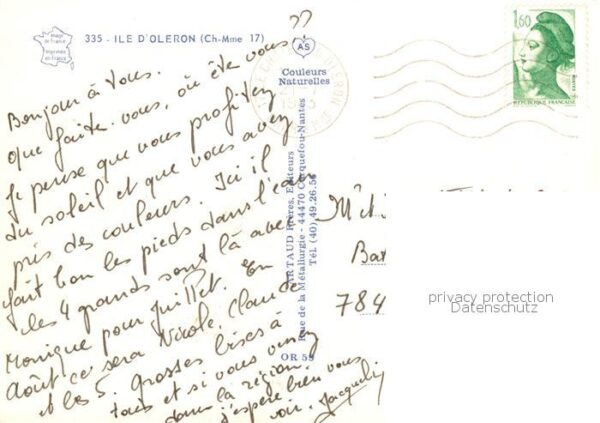 Image
de France
Imprimée
en France
335 - ILE D'OLERON (Ch-Mme 17)
AS
Couleurs
Naturelles
ARTAUD Frères, Editeurs
Rue de la Métallurgie - 44470 Carquefou-Nantes
Tél (40) 49.26.5
OR 55
1,60
REPUBLIQUE FRANÇAISE
Bonjour à tous.
Que faite-vous, où ête vous ???
Je pense que vous profitez
du soleil et que vous avez
pris des couleurs. Ici il
fait bon les pieds dans l'eau
les 4 grands sont là avec
Monique pour Juillet. En
Août ce sera Nicole, Claude
et les 5. grosses bises à
tous et si vous venez
dans la région.
j'espère bien vous
voir. Jacquelin
Mr et
Ba
784
privacy protection
Datenschutz